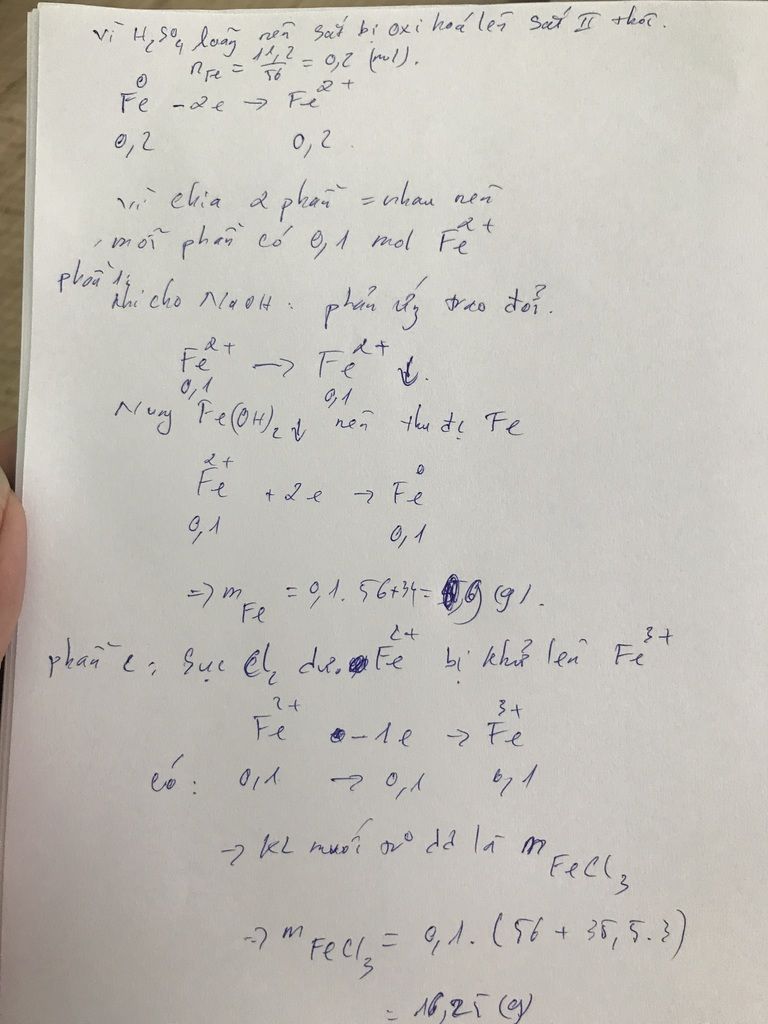 Vì H₂SO₄ loãng nên sắt bị oxi hoá lên sắt II thôi.
nFe = 11,2/56 = 0,2 (mol).
Fe⁰ - 2e → Fe²⁺
0,2 0,2
Vì chia 2 phần = nhau nên
mỗi phần có 0,1 mol Fe²⁺
phần 1:
Khi cho NaOH: phản ứng trao đổi.
Fe²⁺ → Fe²⁺ ↓.
0,1 0,1
Nung Fe(OH)₂↓ nên thu đc Fe
Fe²⁺ + 2e → Fe⁰
0,1 0,1
=> mFe = 0,1. 56+34= (g).
phần 2: Sục Cl₂ dư. Fe²⁺ bị khử lên Fe³⁺
Fe²⁺ - 1e → Fe³⁺
có: 0,1 → 0,1 0,1
→ KL muối đã là mFeCl₃
=> mFeCl₃ = 0,1. (56 + 35,5.3)
= 16,25 (g)